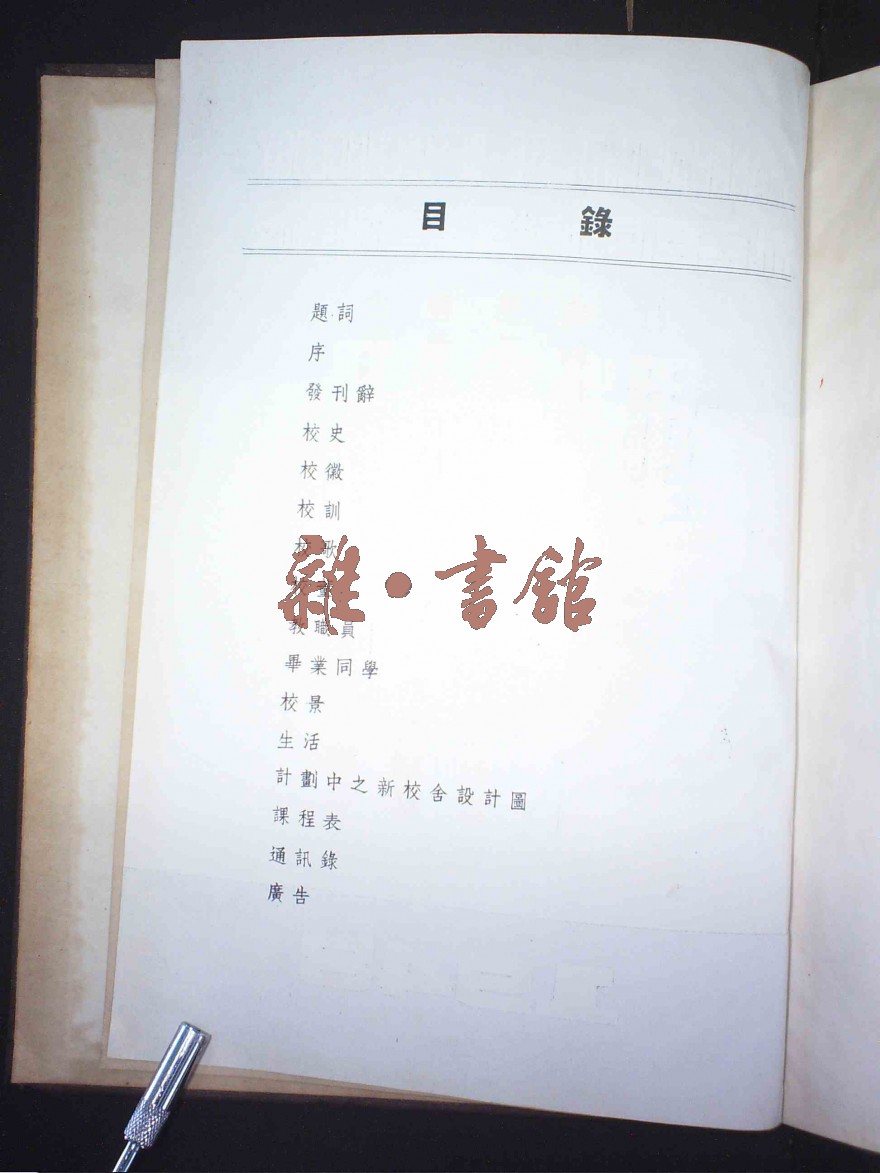 目錄
題詞
序
發刊辭
校史
校徽
校訓
校歌
教職員
畢業同學
校景
生活
計劃中之新校舍設計圖
課程表
通訊錄
廣告
雜·書館